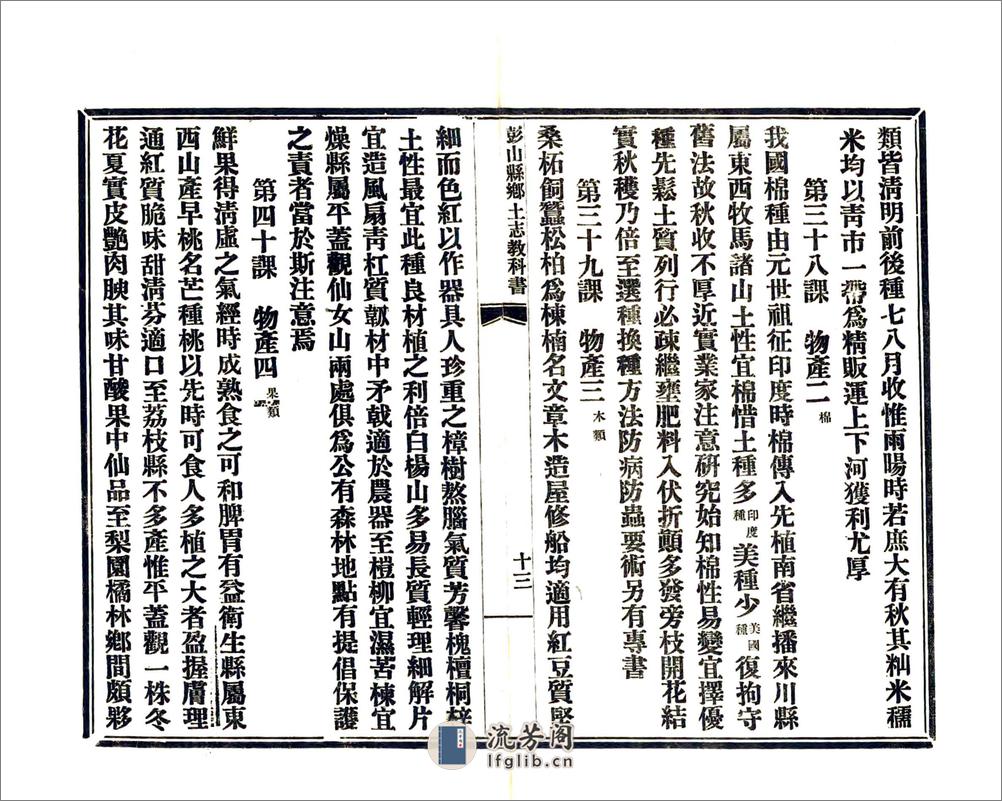 類皆清明前後種七八月收惟雨暘時若庶大有秋其籼米穤
米均以青市一帶爲精販運上下河獲利尤厚
第三十八課　物產二　棉
我國棉種由元世祖征印度時棉傳入先植南省繼播來川縣
屬東西牧馬諸山土性宜棉惜土種多印度種美種少美國種復拘守
舊法故秋收不厚近實業家注意硏究始知棉性易變宜擇優
種先鬆土質列行必疎繼壅肥料入伏折顚多發旁枝開花結
實秋穫乃倍至選種換種方法防病防蟲要術另有專書
第三十九課　物產三　木類
桑柘飼蠶松柏爲棟楠名文章木造屋修船均適用紅豆質堅
彭山縣鄉土志教科書　十三
細而色紅以作器具人珍重之樟樹熬腦氣質芳馨槐檀桐梓
土性最宜此種良材植之利倍白楊山多易長質輕理細解片
宜造風扇青杠質韌材中矛戟適於農器至檉柳宜濕苦楝宜
燥縣屬平蓋觀仙女山兩處俱爲公有森林地點有提倡保護
之責者當於斯注意焉
第四十課　物產四　果類
鮮果得清虛之氣經時成熟食之可和脾胃有益衛生縣屬東
西山產早桃名芒種桃以先時可食人多植之大者盈握膚理
通紅質脆味甜清芬適口至荔枝縣不多產惟平蓋觀一株冬
花夏實皮艷肉腴其味甘酸果中仙品至梨園橘林鄉間頗夥
流芳阁
lfglib.cn